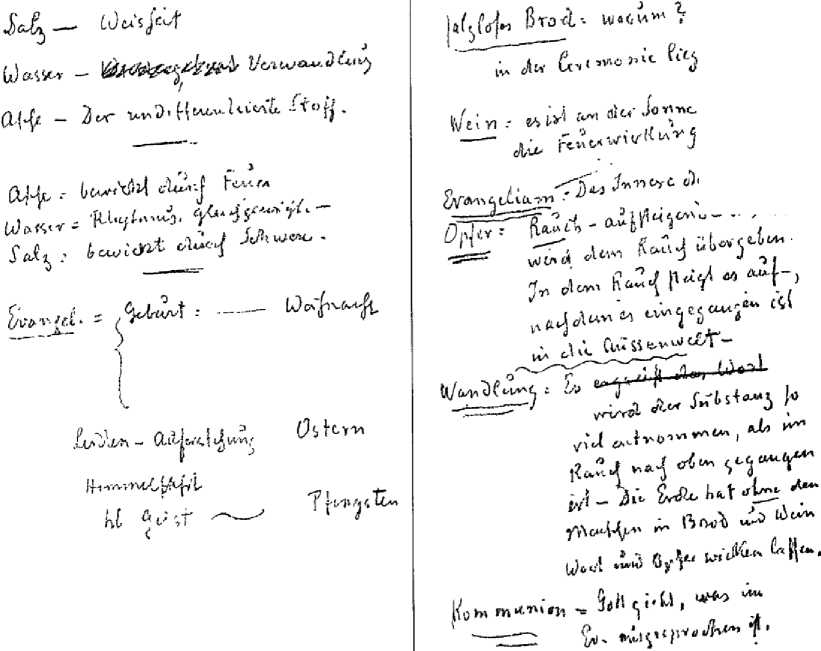 Salz — Weisheit
Wasser — Verwandlung
Asche — Der undifferenzierte Stoff.
Asche = bewirkt durch Feuer
Wasser = Rhythmus, gleichgewicht. —
Salz = bewirkt durch Schwere.
Evangel. = Geburt : — Weihnacht
Leiden — Auferstehung Ostern
Himmelfahrt
hl Geist — Pfingsten
salzloses Brod = warum?
in der Ceremonie
Wein = es ist an der Sonne
die Feuerwirkung
Evangelium = Das Innere
Opfer = Rauch — aufsteigend — ....
wird dem Rauch übergeben.
In dem Rauch steigt es auf —,
nachdem es eingegangen ist
in die Aussenwelt —
Wandlung = Es ergreift das Wort
wird der Substanz so
viel entnommen, als im
Rauch nach oben gegangen
ist — Die Erde hat ohne den
Menschen in Brod und Wein
Wort und Opfer wirken lassen.
Kommunion = Gott giebt, was im
Ev. ausgesprochen ist.